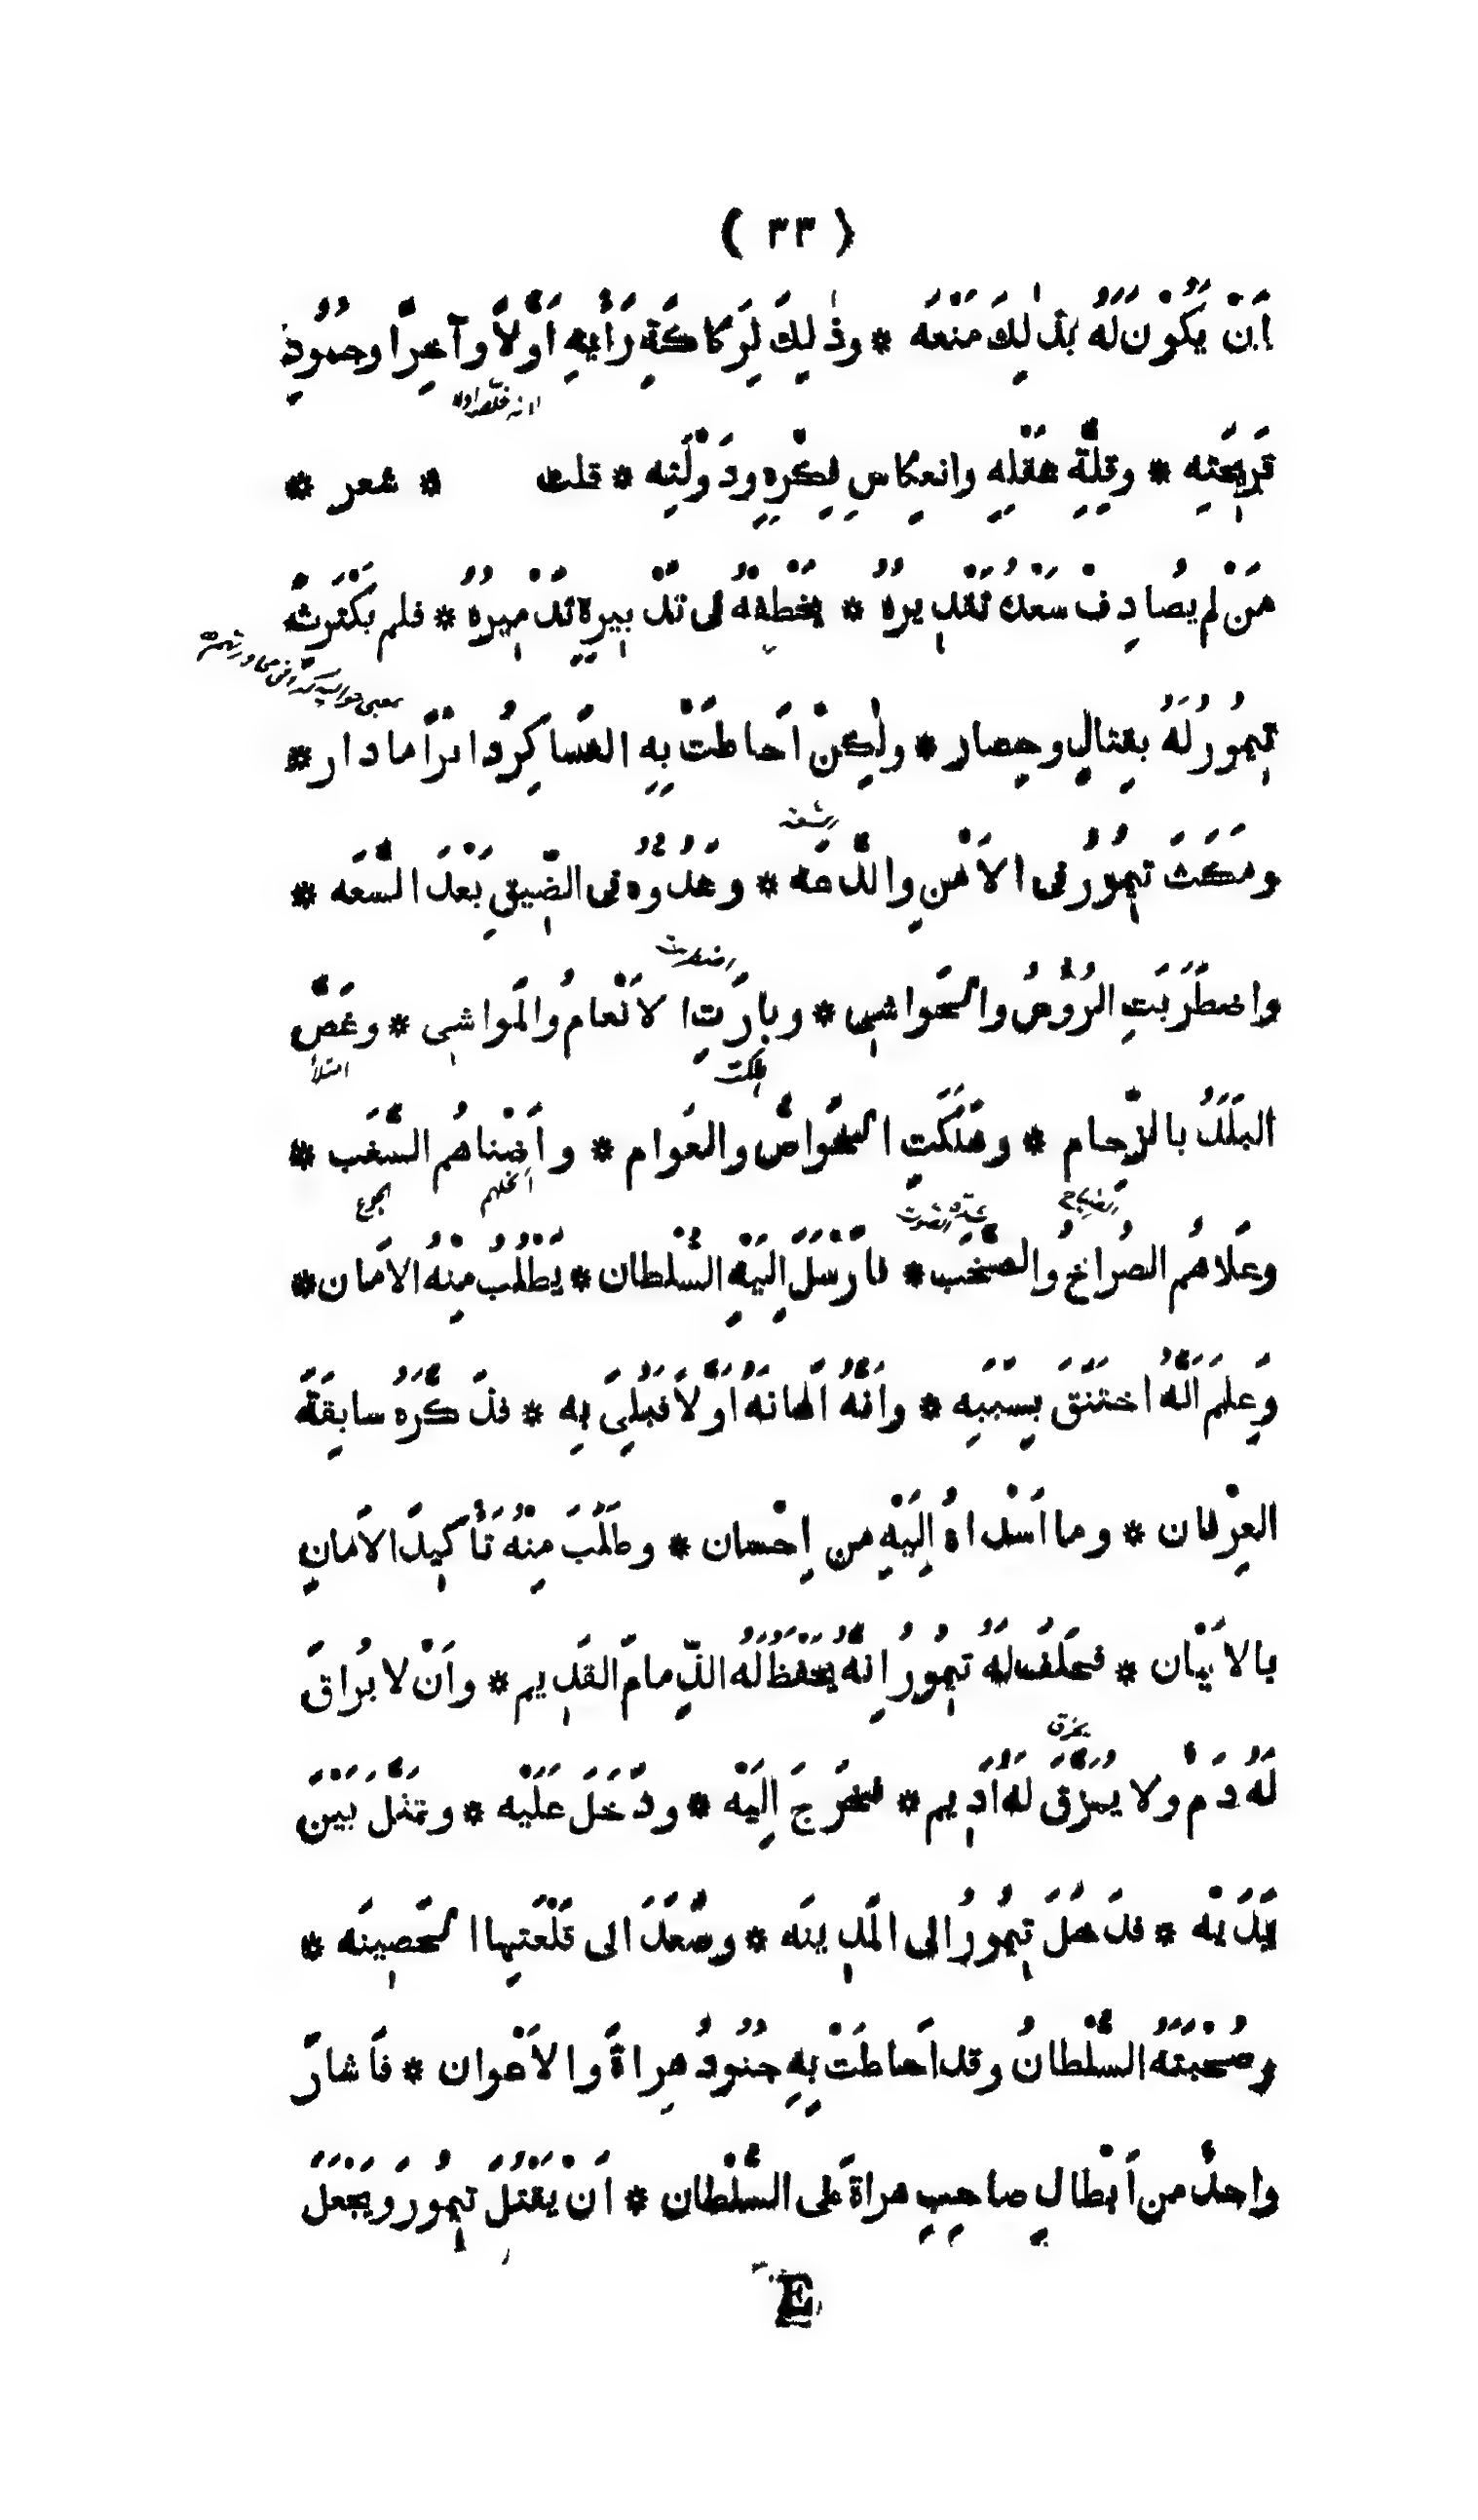 ( ٣٣ )
اَنْ يَكُوْنَ لَهُ بِذٰلِكَ مَنَعَه * وذٰلِكَ لِرَكاكَةِ رَأْيِهِ اَوَّلاً وآخِراً وجُمُودِ
قَرِيحَتِه * وقِلَّةِ عَقْلِهِ وانعِكاسِ فِكْرِهِ ودَوْلَتِه * قلت * شعر *
مَنْ لم يُصادِفْ سَعْدُ تَقْدِيرهُ * يُخْطِفُهُ فى تَدْبِيرِهِ تَدْمِيرهُ * فلم يَكْتَرِثْ
تِيمُورُ لَهُ بِقتالٍ وحِصار * ولٰكِنْ اَحاطَتْ بِهِ العَساكِرُ دائراً ما دار *
ومَكَثَ تِيمُورُ فى الاَمْنِ والدَّعَه * وعَدُوُّه فى الضِّيقِ بَعْدَ السَّعَه *
واضطَرَبَتِ الرُؤُسُ والحَواشِى * وبارَتِ الاَنْعامُ والمَواشِى * وغَصَّ
امتلأ
هلكت
البَلَدُ بالزِّحام * وهَلَكَتِ الخَواصُّ والعَوام * واَضْناهُم السَّغَب *
الجوع
وعَلاهُم الصُراخُ والصَّخَب * فاَرْسَلَ اِلَيْهِ السُّلْطان * يَطْلُبُ مِنْهُ الاَمان *
وَعِلمَ اَنَّهُ اختَنَقَ بِسَبَبِه * واَنَّهُ اَعانَهُ اَوَّلاً فَبُلِىَ بِه * فذَكَّرَهُ سابِقَةَ
العِرْفان * وما اَسْداهُ اِلَيْهِ من اِحْسان * وطَلَبَ مِنْهُ تَأْكِيدَ الاَمانِ
بالاَيْمان * فحَلَفَ لَهُ تِيمُورُ اِنَّهُ يَحْفَظُ لَهُ الذِّمامَ القَدِيم * واَنْ لا يُراقَ
لَهُ دَمٌ ولا يُمَزَّقَ لَهُ اَدِيم * فخَرَجَ اِلَيْه * ودَخَلَ عَلَيْه * وتمَثَّلَ بَيْنَ
يَدَيْه * فدَخَلَ تِيمُورُ الى المَدِينَه * وصَعَدَ الى قَلْعَتِها الحَصِينَه *
وصُحْبَتُهُ السُّلْطانُ وقد اَحاطَتْ بِهِ جُنُودُ هِراةَ والاَعْوان * فاَشارَ
واحدٌ من اَبْطالِ صاحِبِ هراةَ عَلى السُّلْطان * اَنْ يَقْتُلَ تِيمُورَ ويَجْعَلَ
E